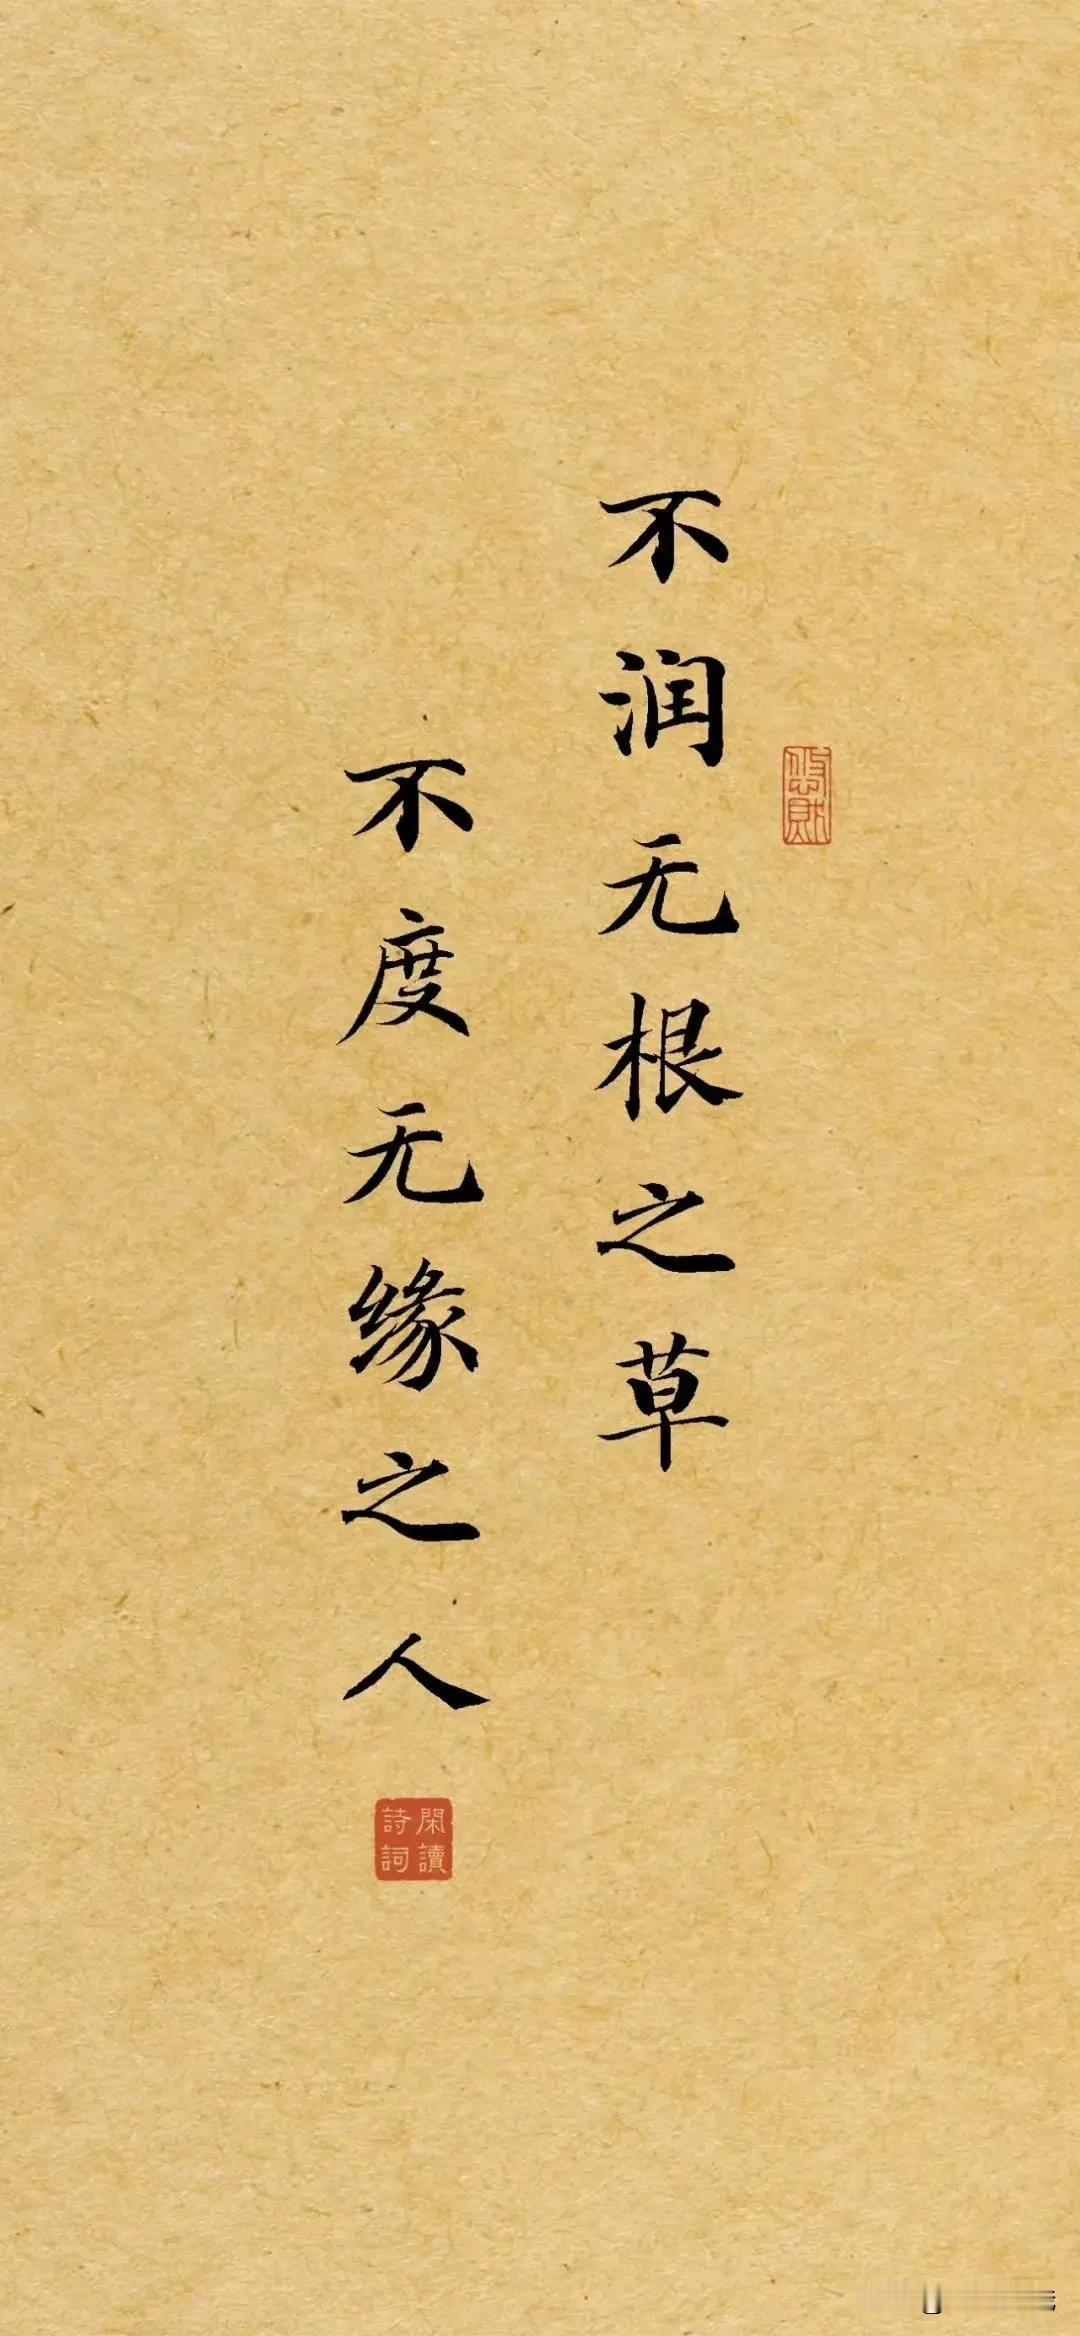 不润无根之草
不度无缘之人
閑讀
詩詞